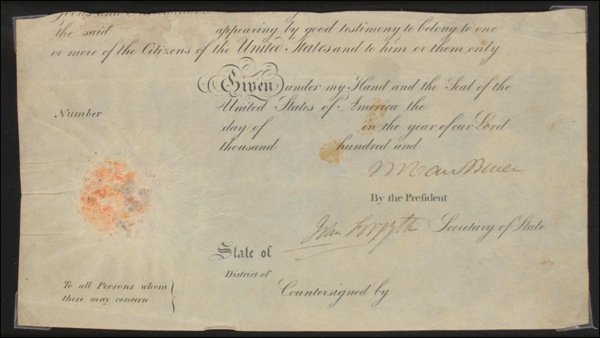 the said appearing by good testimony to belong to one
or more of the Citizens of the United States and to him or them only
Given under my Hand and the Seal of the
United States of America the
Number
day of in the year of our Lord
thousand hundred and
M Van Buren
By the President
John Forsyth Secretary of State
State of
District of
To all Persons whom
these may concern
Countersigned by